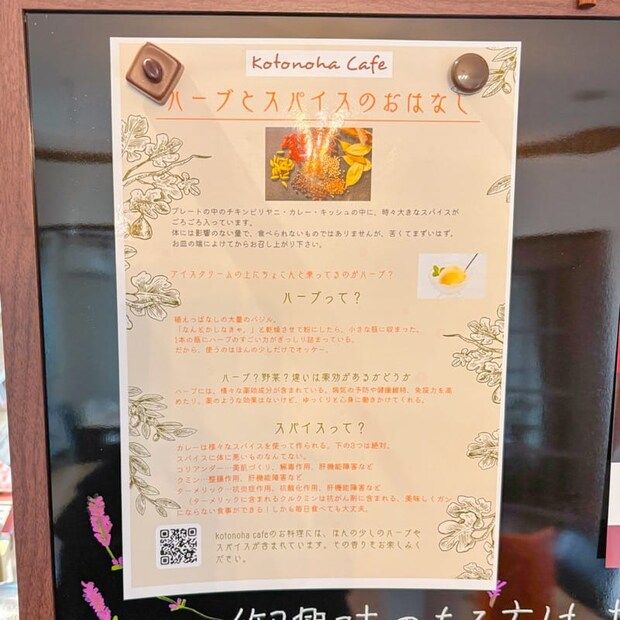 Kotonoha Cafe
ハーブとスパイスのおはなし
プレートの中のチキンビリヤニ・カレー・キッシュの中に、時々大きなスパイスが
ごろごろ入っています。
体には影響のない量で、食べられないものではありませんが、苦くてまずいはず。
お皿の端によけてからお召し上がり下さい。
アイスクリームの上にちょこんと乗ってるのがハーブ？
ハーブって？
植えっぱなしの大量のバジル。
「なんとかしなきゃ。」と乾燥させて粉にしたら、小さな瓶に収まった。
1本の瓶にハーブのすごい力がぎっしり詰まっている。
だから、使うのはほんの少しだけでオッケー。
ハーブ？野菜？違いは薬効があるかどうか
ハーブには、様々な薬効成分が含まれている。病気の予防や健康維持、免疫力を高
めたり。薬のような効果はないけど、ゆっくりと心身に働きかけてくれる。
スパイスって？
カレーは様々なスパイスを使って作られる。下の3つは絶対。
スパイスに体に悪いものなんてない。
コリアンダー…美肌づくり、解毒作用、肝機能障害など
クミン…整腸作用、肝機能障害など
ターメリック…抗炎症作用、抗酸化作用、肝機能障害など
（ターメリックに含まれるクルクミンは抗がん剤に含まれる、美味しくガン
にならない食事ができる！しかも毎日食べても大丈夫。
kotonoha cafeのお料理には、ほんの少しのハーブや
スパイスが含まれています。その香りをお楽しみく
ださい。